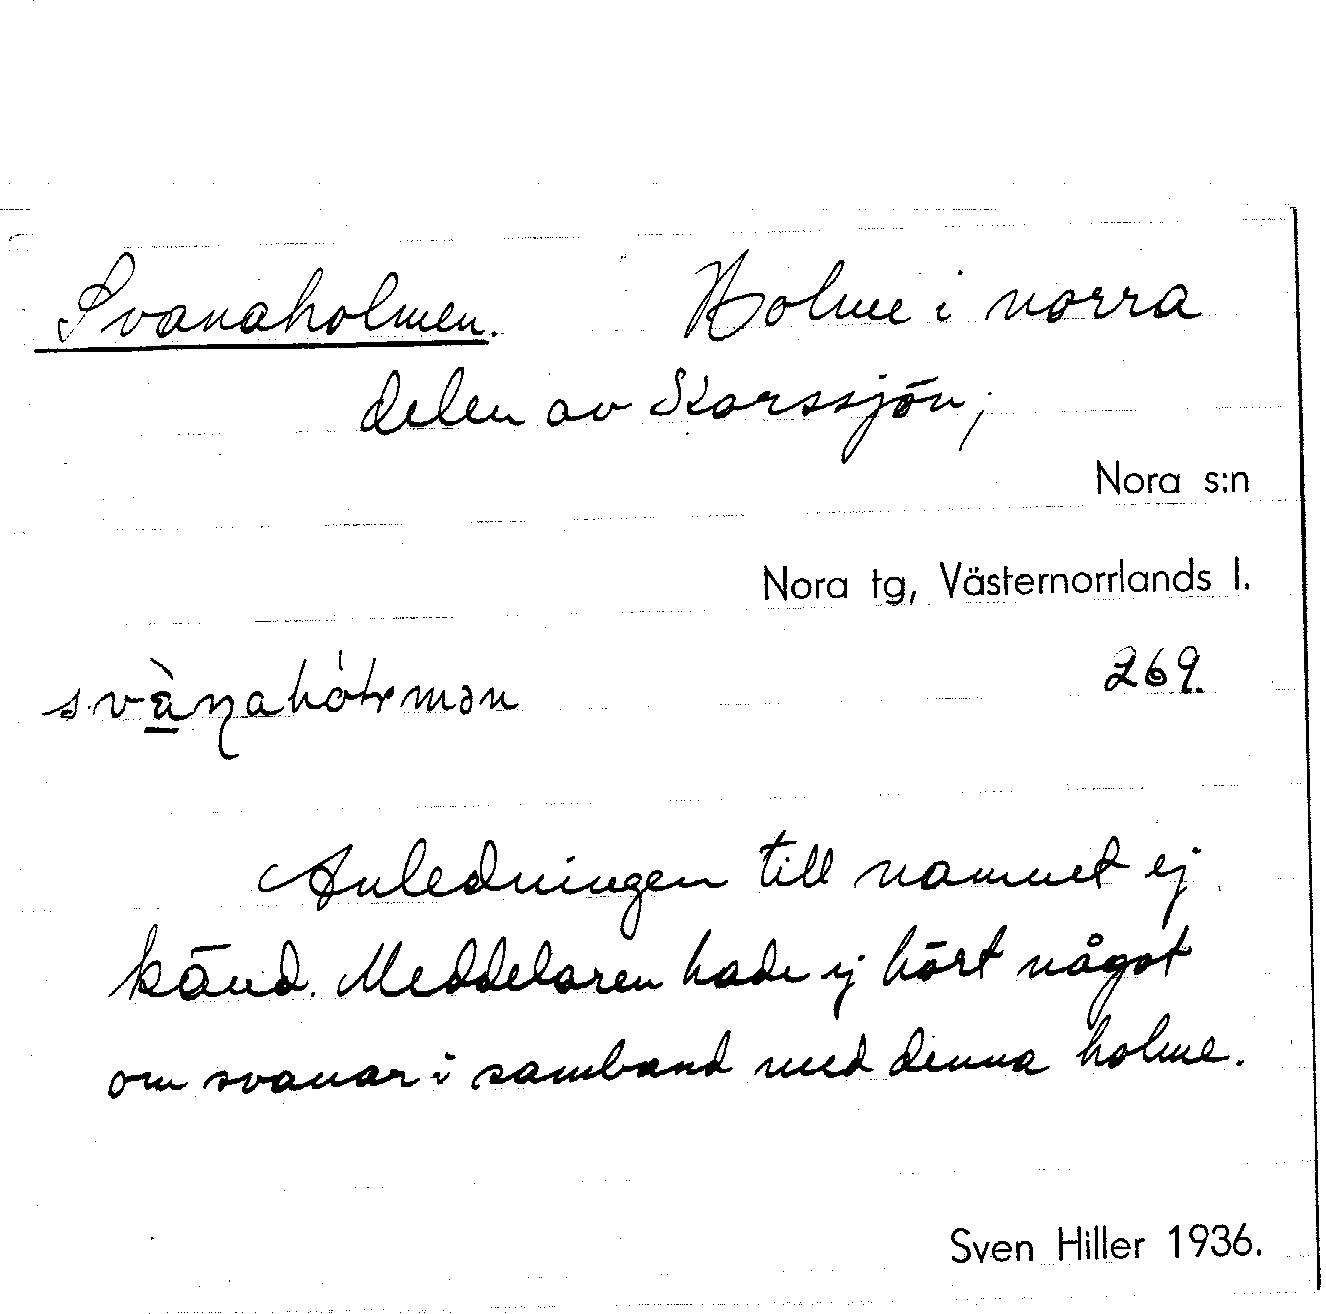 Svanaholmen. Holme i norra
delen av Storssjön,
Nora s:n
Nora tg, Västernorrlands l.
269.
Anledningen till namnet ej
känd. Meddelaren hade ej hört något
om svanar i samband med denna holme.
Sven Hiller 1936.